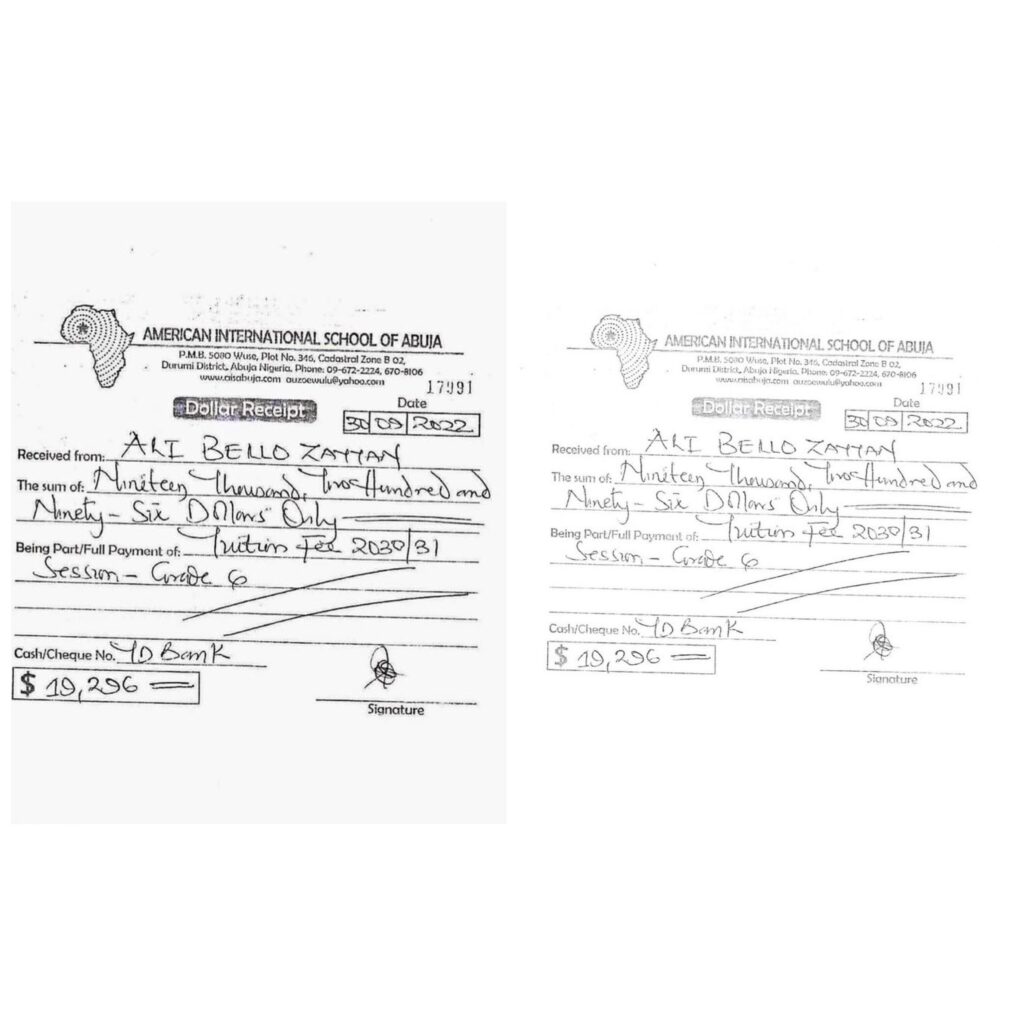 AMERICAN INTERNATIONAL SCHOOL OF ABUJA
P.M.B. 5000 Wuse, Plot No. 346, Cadastral Zone B 02,
Durumi District, Abuja Nigeria. Phone: 09-672-2224, 670-8106
www.aisabuja.com auzoewulu@yahoo.com
17991
Dollar Receipt
Date
30 09 2022
Received from: ALI BELLO
The sum of: Nineteen Thousand, Two Hundred and
Ninety - Six Dollars Only
Being Part/Full Payment of: Tuition Fee 2030/31
Session - Grade 6
Cash/Cheque No. TD Bank
$ 19,296
Signature
AMERICAN INTERNATIONAL SCHOOL OF ABUJA
P.M.B. 5000 Wuse, Plot No. 346, Cadastral Zone B 02,
Durumi District, Abuja Nigeria. Phone: 09-672-2224, 670-8106
www.aisabuja.com auzoewulu@yahoo.com
17991
Dollar Receipt
Date
30 09 2022
Received from: ALI BELLO
The sum of: Nineteen Thousand, Two Hundred and
Ninety - Six Dollars Only
Being Part/Full Payment of: Tuition Fee 2030/31
Session - Grade 6
Cash/Cheque No. TD Bank
$ 19,296
Signature